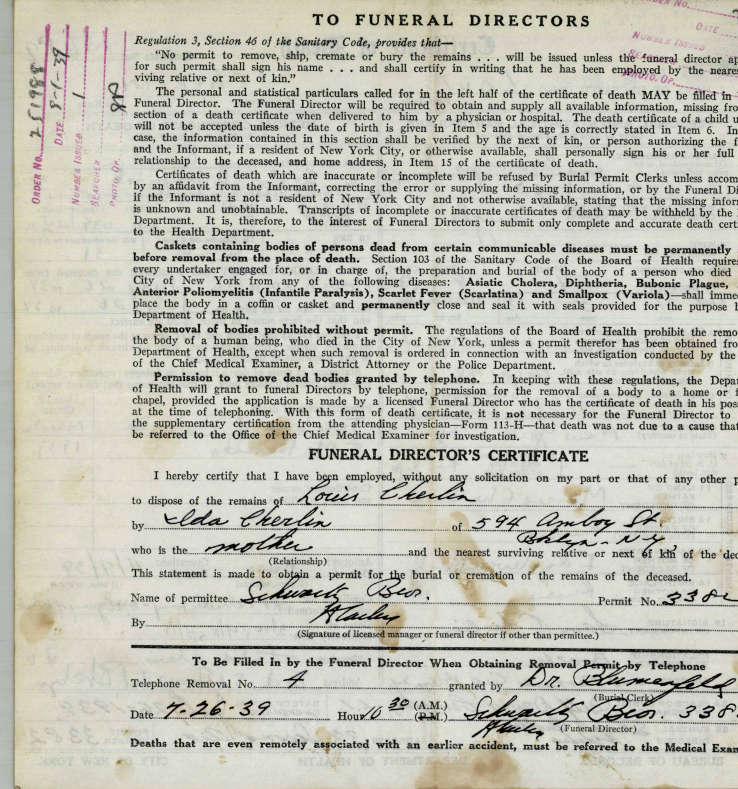 TO FUNERAL DIRECTORS
Regulation 3, Section 46 of the Sanitary Code, provides that—
"No permit to remove, ship, cremate or bury the remains . . . will be issued unless the funeral director ap
for such permit shall sign his name . . . and shall certify in writing that he has been employed by the neares
viving relative or next of kin."
The personal and statistical particulars called for in the left half of the certificate of death MAY be filled in
Funeral Director. The Funeral Director will be required to obtain and supply all available information, missing fro
section of a death certificate when delivered to him by a physician or hospital. The death certificate of a child u
will not be accepted unless the date of birth is given in Item 5 and the age is correctly stated in Item 6. In
case, the information contained in this section shall be verified by the next of kin, or person authorizing the f
and the Informant, if a resident of New York City, or otherwise available, shall personally sign his or her full
relationship to the deceased, and home address, in Item 15 of the certificate of death.
Certificates of death which are inaccurate or incomplete will be refused by Burial Permit Clerks unless accom
by an affidavit from the Informant, correcting the error or supplying the missing information, or by the Funeral Di
if the Informant is not a resident of New York City and not otherwise available, stating that the missing infor
is unknown and unobtainable. Transcripts of incomplete or inaccurate certificates of death may be withheld by the
Department. It is, therefore, to the interest of Funeral Directors to submit only complete and accurate death cert
to the Health Department.
Caskets containing bodies of persons dead from certain communicable diseases must be permanently
before removal from the place of death. Section 103 of the Sanitary Code of the Board of Health requires
every undertaker engaged for, or in charge of, the preparation and burial of the body of a person who died
City of New York from any of the following diseases: Asiatic Cholera, Diphtheria, Bubonic Plague,
Anterior Poliomyelitis (Infantile Paralysis), Scarlet Fever (Scarlatina) and Smallpox (Variola)—shall imme
place the body in a coffin or casket and permanently close and seal it with seals provided for the purpose b
Department of Health.
Removal of bodies prohibited without permit. The regulations of the Board of Health prohibit the remo
the body of a human being, who died in the City of New York, unless a permit therefor has been obtained fro
Department of Health, except when such removal is ordered in connection with an investigation conducted by the
of the Chief Medical Examiner, a District Attorney or the Police Department.
Permission to remove dead bodies granted by telephone. In keeping with these regulations, the Depar
of Health will grant to funeral Directors by telephone, permission for the removal of a body to a home or f
chapel, provided the application is made by a licensed Funeral Director who has the certificate of death in his pos
at the time of telephoning. With this form of death certificate, it is not necessary for the Funeral Director to
the supplementary certification from the attending physician—Form 113-H—that death was not due to a cause that
be referred to the Office of the Chief Medical Examiner for investigation.
FUNERAL DIRECTOR'S CERTIFICATE
I hereby certify that I have been employed, without any solicitation on my part or that of any other p
to dispose of the remains of Louis Cherlin
by Ida Cherlin of 594 Amboy St.
Bklyn - N.Y.
who is the mother and the nearest surviving relative or next of kin of the dec
(Relationship)
This statement is made to obtain a permit for the burial or cremation of the remains of the deceased.
Name of permittee Schwartz Bros. Permit No. 3382
By
(Signature of licensed manager or funeral director if other than permittee.)
To Be Filled In by the Funeral Director When Obtaining Removal Permit by Telephone
Telephone Removal No. 4 granted by Dr. Blumenfeld
(Burial Clerk)
Date 7-26-39 Hour 10 30 (A.M.) (P.M.) Schwartz Bros. 338
(Funeral Director)
Deaths that are even remotely associated with an earlier accident, must be referred to the Medical Exam
ORDER No. 251988
DATE 8-1-39
NUMBER ISSUED 1
SEARCHED
PHOTO. OP.
ORDER No.
DATE
NUMBER ISSUED
PHOTO. OP.